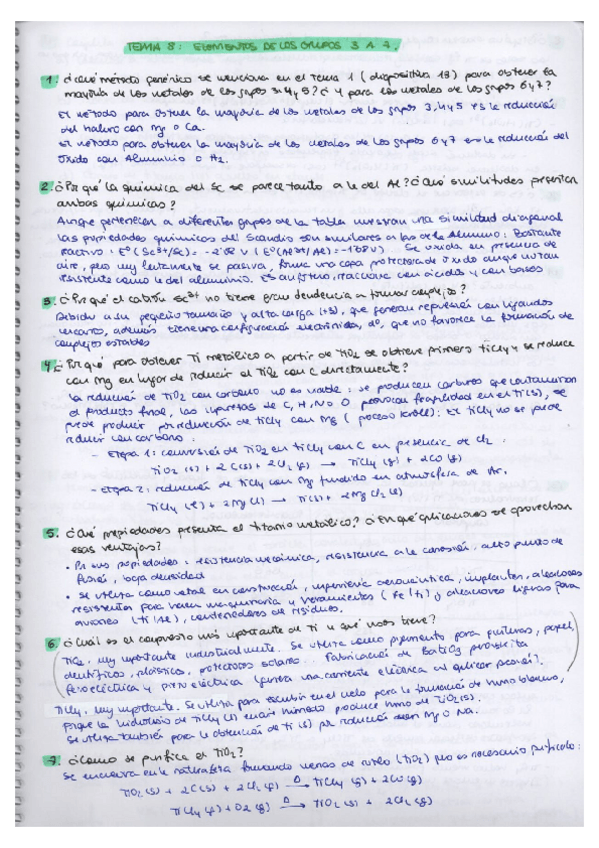 TEMA 8: ELEMENTOS DE LOS GRUPOS 3 A 7.
1. ¿Qué método genérico se menciona en el tema 1 (diapositiva 18) para obtener la
mayoría de los metales de los grupos 3, 4 y 5? ¿Y para los metales de los grupos 6 y 7?
El método para obtener la mayoría de los metales de los grupos 3, 4 y 5 es la reducción
del haluro con Mg o Ca.
El método para obtener la mayoría de los metales de los grupos 6 y 7 es la reducción del
óxido con Aluminio o H2.
2. ¿Por qué la química del Sc se parece tanto a la del Al? ¿Qué similitudes presentan
ambas químicas?
Aunque pertenecen a diferentes grupos de la tabla muestran una similitud diagonal
las propiedades químicas del Scandio son similares a las de la Aluminio: Bastante
reactivo: Eº (Sc3+/Sc) = V (Eº(Al3+/Al) = V) Se oxida en presencia de
aire, pero muy lentamente se pasiva, forma una capa protectora de óxido aunque no tan
resistente como la del aluminio. Es anfótero, reacciona con ácidos y con bases
3. ¿Por qué el catión Sc3+ no tiene gran tendencia a formar complejos?
Debido a su pequeño tamaño y alta carga (+3), que generan repulsión con ligandos
cercanos, además tiene una configuración electrónica, d0, que no favorece la formación de
complejos estables
4. ¿Por qué para obtener Ti metálico a partir de TiO2 se obtiene primero TiCl4 y se reduce
con Mg en lugar de reducir el TiO2 con C directamente?
La reducción de TiO2 con carbono no es viable: se producen carburos que contaminan
el producto final, las impurezas de C, H, N o O provocan fragilidad en el Ti(s), se
puede producir por reducción de TiCl4 con Mg (proceso Kroll): El TiCl4 no se puede
reducir con carbono:
- Etapa 1: conversión de TiO2 en TiCl4 con C en presencia de Cl2:
TiO2 (s) + 2C(s) + 2Cl2 (g) → TiCl4 (g) + 2CO (g)
- Etapa 2: reducción de TiCl4 con Mg fundido en atmósfera de Ar.
TiCl4 (g) + 2Mg (l) → Ti(s) + 2MgCl2 (l)
5. ¿Qué propiedades presenta el titanio metálico? ¿En qué aplicaciones se aprovechan
esas ventajas?
• Por sus propiedades: resistencia mecánica, resistencia a la corrosión, alto punto de
fusión, baja densidad
• Se utiliza como metal en construcción, ingeniería aeronáutica, implantes, aleaciones
resistentes para maquinaria y herramientas (Fe/Ti) y aleaciones ligeras para
aviones (Ti/Al), contenedores de residuos.
6. ¿Cuál es el compuesto más importante de Ti y qué usos tiene?
TiO2, muy importante industrialmente. Se utiliza como pigmento para pinturas, papel,
dentífricos, plásticos, protectores solares. Fabricación de BaTiO3 perovskita
ferroeléctrica y piezoeléctrica (genera una corriente eléctrica al aplicar presión).
TiCl4, muy importante. Se utiliza para escribir en el cielo por la formación de humo blanco,
porque la hidrólisis de TiCl4 (l) en aire húmedo produce humo de TiO2 (s).
Se utiliza también para la obtención de Ti (s) por reducción con Mg o Na.
7. ¿Cómo se purifica el TiO2?
Se encuentra en la naturaleza formando menas de rutilo (TiO2) que es necesario purificarlo:
TiO2 (s) + 2C(s) + 2Cl2 (g) Δ→ TiCl4 (g) + 2CO (g)
TiCl4 (g) + O2 (g) Δ→ TiO2 (s) + 2Cl2 (g)